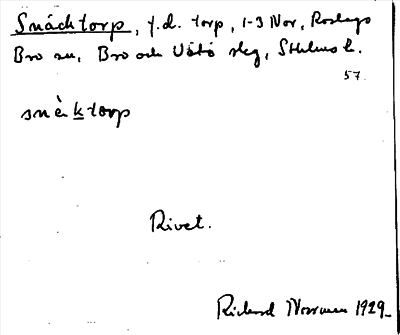 Snäcktorp, f.d. torp, 1-3 Nor, Roslags
Bro sn, Bro och Vätö skg, Sthlms l.
57.
snèktorp
Rivet.
Rickard Norman 1929